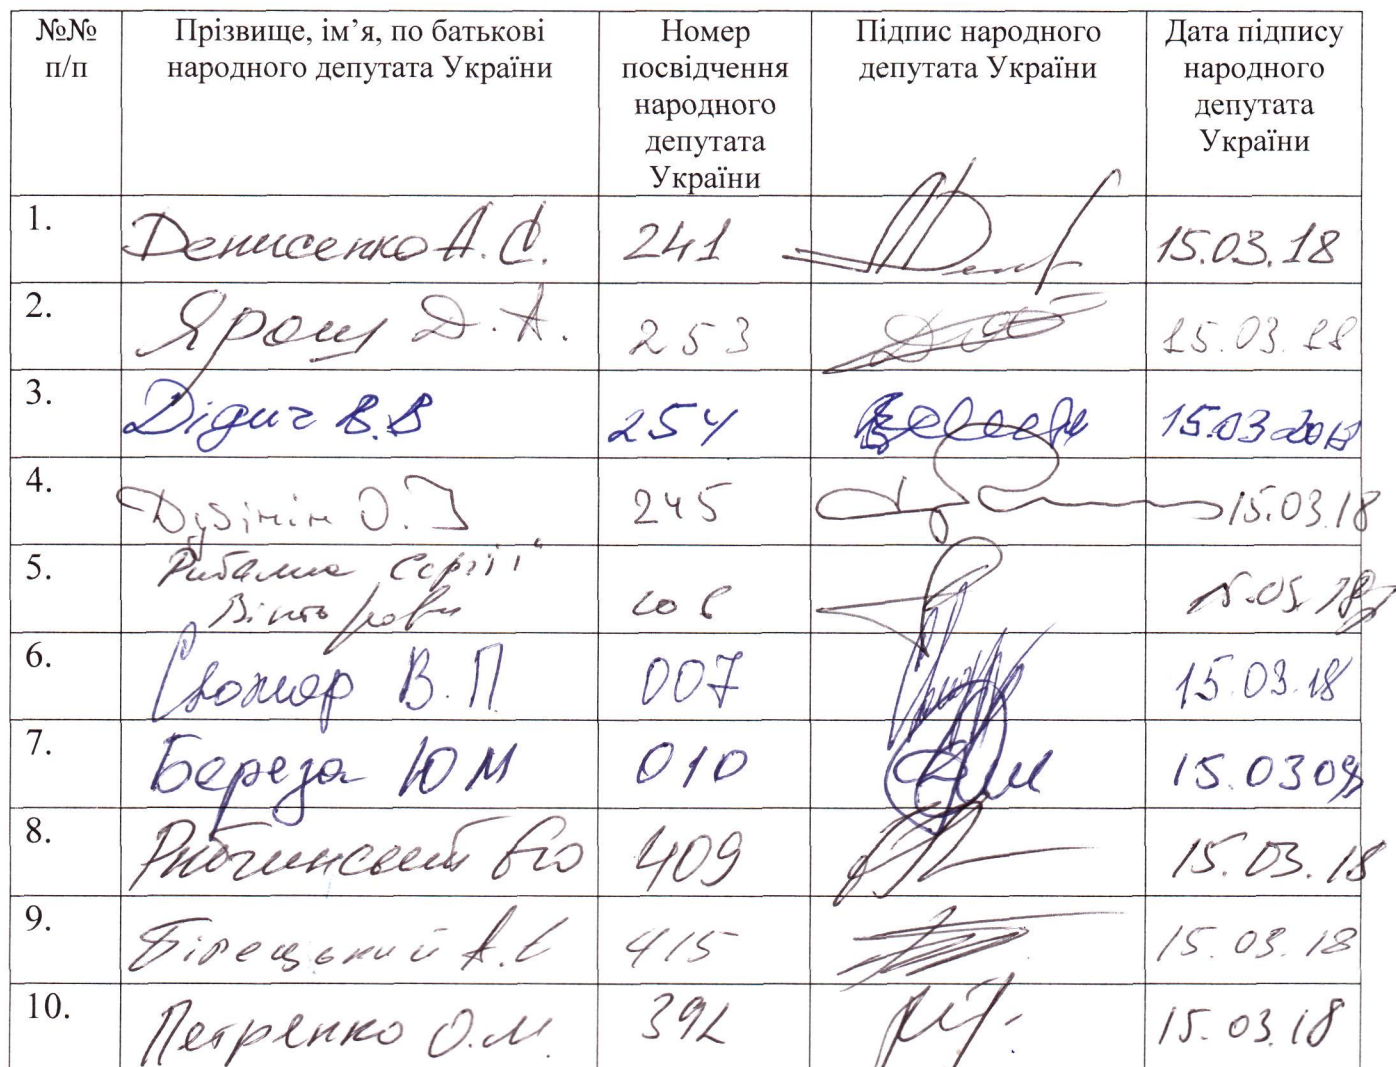 №№ п/п Прізвище, ім’я, по батькові народного депутата України Номер посвідчення народного депутата України Підпис народного депутата України Дата підпису народного депутата України
1. Денисенко А.С. 241 15.03.18
2. Ярош Д.А. 253 15.03.18
3. Дідич В.В 254 15.03 2018
4. Дубінін О.І 245 15.03.18
5. Рибалка Сергій
Вікторович 15.03.18
6. Сюмар В.П 007 15.03.18
7. Береза Ю М 010 15.03
8. 409 15.03.18
9. Білецький А.Є 415 15.03.18
10. Петренко О.М. 392 15.03.18